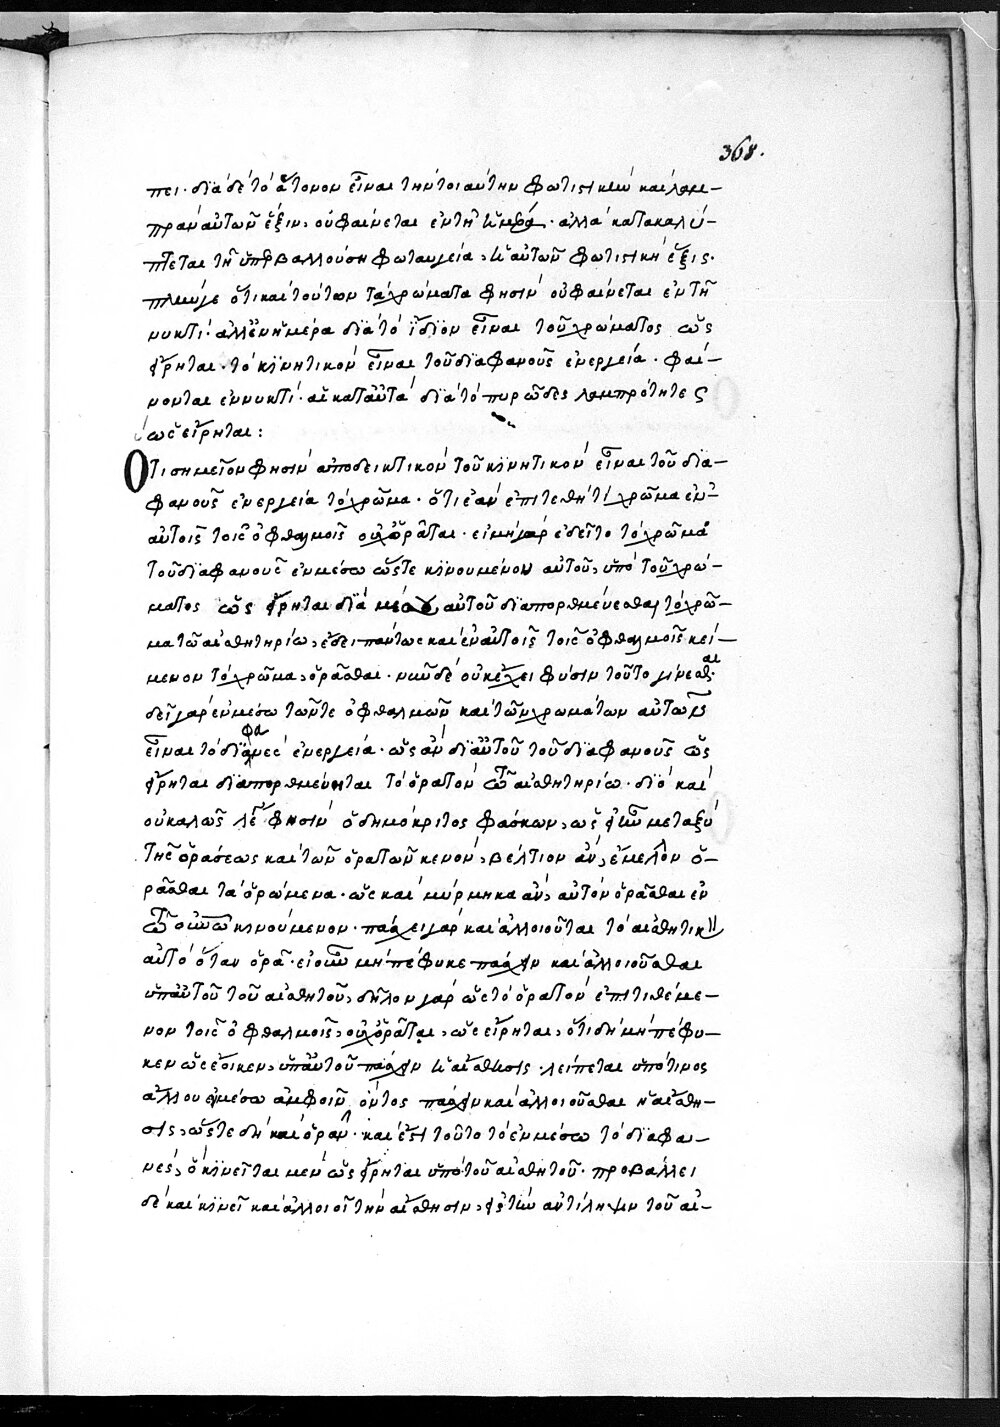 368.
πει· διὰ δὲ τὸ ἄτονον εἶναι τὴν τοιαύτην φωτιστικὴν καὶ λαμ-
πρὰν αὐτῶν ἕξιν, οὐ φαίνεται ἐν τῇ ἡμέρᾳ· ἀλλὰ κατακαλύ-
πτεται τῇ ὑπερβαλλούσῃ φωταυγείᾳ, ἡ αὐτῶν φωτιστικὴ ἕξις·
πλὴν γε ὅτι καὶ τούτων τὰ χρώματα φησὶν οὐ φαίνεται ἐν τῇ
νυκτί· ἀλλ' ἐν ἡμέρα διὰ τὸ ἴδιον εἶναι τοῦ χρώματος ὡς
εἴρηται· τὸ κινητικὸν εἶναι τοῦ διαφανοῦς ἐνεργεία· φαί-
νονται ἐν νυκτί· αἱ κατ' αὐτὰ διὰ τὸ πυρῶδες λαμπρότητες
ὡς εἴρηται:
Ὅτι σημεῖον φησὶν ἀποδεικτικὸν τοῦ κινητικὸν εἶναι τοῦ δια-
φανοῦς ἐνεργεία τὸ χρῶμα· ὅτι ἐὰν ἐπιτεθῇ τὶ χρῶμα ἐν
αὐτοῖς τοῖς ὀφθαλμοῖς οὐχ ὁρᾶται· εἰ μὴ γὰρ ἐδεῖτο τὸ χρῶμα
τοῦ διαφανοῦς ἐν μέσω ὥστε κινουμένου αὐτοῦ, ὑπὸ τοῦ χρώ-
ματος ὡς εἴρηται διὰ μέσου αὐτοῦ διαπορθμεύεσθαι τὸ χρῶ-
μα τῶ αἰσθητηρίω, ἔδει πάντως καὶ ἐν αὐτοῖς τοῖς ὀφθαλμοῖς κεί-
μενον τὸ χρῶμα, ὁρᾶσθαι· νῦν δὲ οὐκ ἔχει φύσιν τοῦτο γίνεσθαι·
δεῖ γὰρ ἐν μέσω τῶν τε ὀφθαλμῶν καὶ τῶν χρωμάτων αὐτῶν
εἶναι τὸ διαφανὲς ἐνεργεία· ὡς ἂν δι' αὐτοῦ τοῦ διαφανοῦς ὡς
εἴρηται διαπορθμεύηται τὸ ὁρατὸν τῶ αἰσθητηρίω· διὸ καὶ
οὐ καλῶς λέγει φησὶν ὁ δημόκριτος φάσκων, ὡς εἰ ἦν μεταξὺ
τῆς ὁράσεως καὶ τῶν ὁρατῶν κενὸν, βέλτιον ἂν, ἔμελλον ὁ-
ρᾶσθαι τὰ ὁρώμενα· ὡς καὶ μύρμηκα ἂν, αὐτὸν ὁρᾶσθαι ἐν
τῶ οὐρανῶ κινούμενον· πάσχει γὰρ καὶ ἀλλοιοῦται τὸ αἰσθητικὸν
αὐτὸ ὅταν ὁρᾶ· εἰ οὖν μὴ πέφυκε πάσχειν καὶ ἀλλοιοῦσθαι
ὑπ' αὐτοῦ τοῦ αἰσθητοῦ, δῆλον γὰρ ὡς τὸ ὁρατὸν ἐπιτιθέμε-
νον τοῖς ὀφθαλμοῖς, οὐχ ὁρᾶται, ὡς εἴρηται, ὅτι δὴ μὴ πέφυ-
κεν ὡς ἔοικεν, ὑπ' αὐτοῦ πάσχειν ἡ αἴσθησις· λείπεται ὑπό τινος
ἄλλου ἐν μέσω ἀμφοῖν ὄντος πάσχειν καὶ ἀλλοιοῦσθαι ἡ αἴσθη-
σις, ὥστε δὴ καὶ ὁρᾶν· καὶ ἔστι τοῦτο τὸ ἐν μέσω τὸ διαφα-
νὲς, ὃ κινεῖται μὲν ὡς εἴρηται ὑπὸ τοῦ αἰσθητοῦ· προβάλλει
δὲ καὶ κινεῖ καὶ ἀλλοιοῖ τὴν αἴσθησιν, εἰς τὴν ἀντίληψιν τοῦ αἰ-